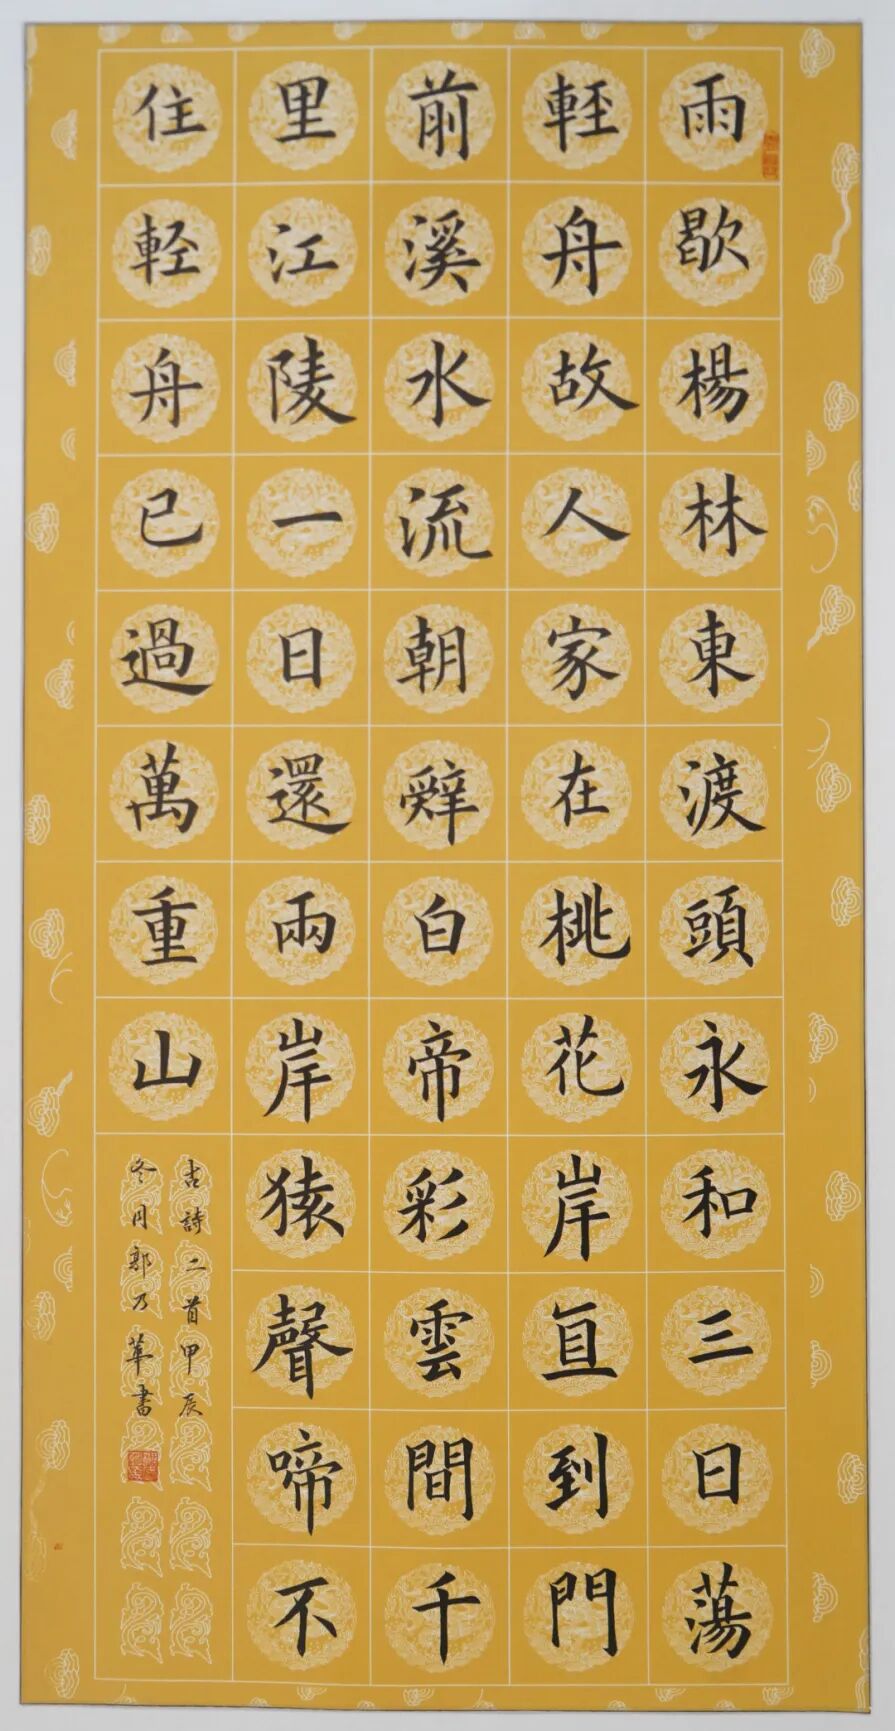 雨歇楊林東渡頭永和三日蕩
輕舟故人家在桃花岸直到門
前溪水流朝辤白帝彩雲間千
里江陵一日還兩岸猿聲啼不
住輕舟已過萬重山
古詩二首甲辰
冬月郭乃華書